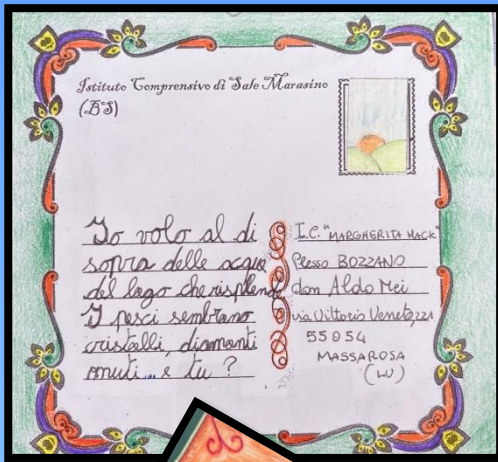 Istituto Comprensivo di Sale Marasino
(BS)
Io volo al di
sopra delle acque
del lago che risplende
I pesci sembrano
cristalli, diamanti
muti... e tu?
I.C. "MARGHERITA HACK"
Plesso BOZZANO
don Aldo Mei
via Vittorio Veneto, 221
55054
MASSAROSA
(LU)